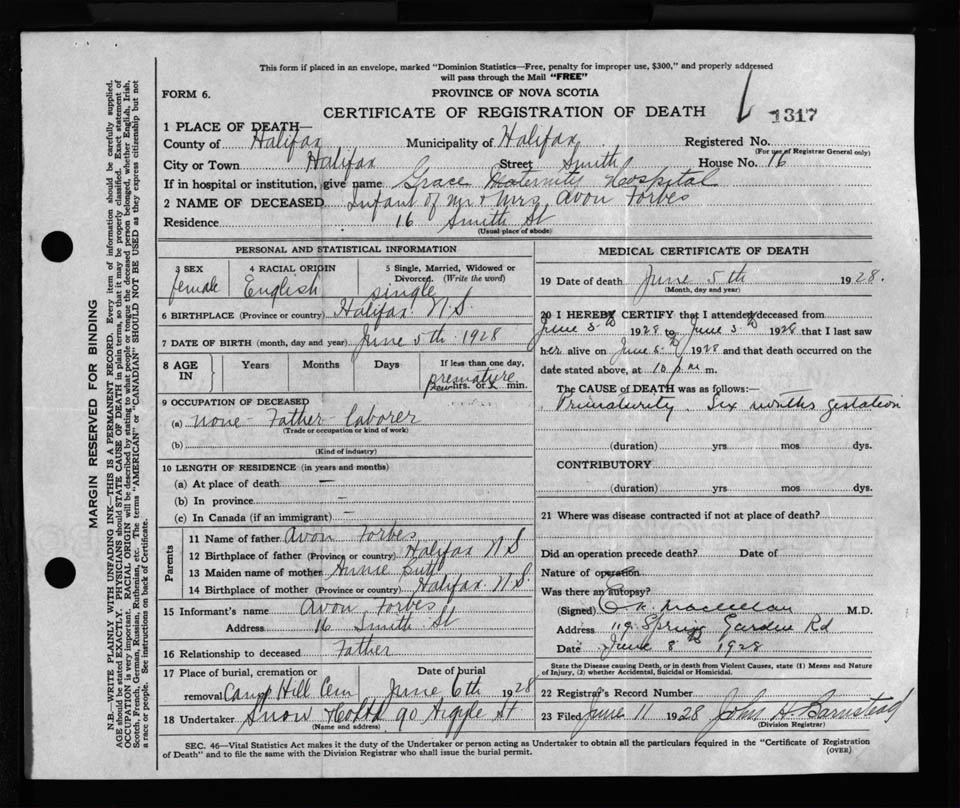 This form if placed in an envelope, marked "Dominion Statistics—Free, penalty for improper use, $300," and properly addressed
will pass through the Mail "FREE"
FORM 6.
PROVINCE OF NOVA SCOTIA
CERTIFICATE OF REGISTRATION OF DEATH
1317
1 PLACE OF DEATH—
County of Halifax Municipality of Halifax Registered No.
(For use of Registrar General only)
City or Town Halifax Street Smith House No. 16
If in hospital or institution, give name Grace Maternity Hospital
2 NAME OF DECEASED Infant of Mr & Mrs Avon Forbes
Residence 16 Smith St
(Usual place of abode)
PERSONAL AND STATISTICAL INFORMATION
3 SEX 4 RACIAL ORIGIN 5 Single, Married, Widowed or Divorced. (Write the word)
female English single
6 BIRTHPLACE (Province or country) Halifax N.S
7 DATE OF BIRTH (month, day and year) June 5th 1928
8 AGE IN Years Months Days If less than one day,
premature
hrs. or min.
9 OCCUPATION OF DECEASED
(a) none - Father laborer
(Trade or occupation or kind of work)
(b)
(Kind of industry)
10 LENGTH OF RESIDENCE (in years and months)
(a) At place of death —
(b) In province —
(c) In Canada (if an immigrant) —
Parents
11 Name of father Avon Forbes
12 Birthplace of father (Province or country) Halifax N S
13 Maiden name of mother
14 Birthplace of mother (Province or country) Halifax. N.S.
15 Informant's name Avon Forbes
Address 16 Smith St
16 Relationship to deceased Father
17 Place of burial, cremation or Date of burial
removal Camp Hill Cem June 6th 1928
18 Undertaker Snow 90 Argyle St
(Name and address)
MEDICAL CERTIFICATE OF DEATH
19 Date of death June 5th 1928.
(Month, day and year)
20 I HEREBY CERTIFY that I attended deceased from
June 5th 1928 to June 5th 1928 that I last saw
her alive on June 5th 1928 and that death occurred on the
date stated above, at 10 p m m.
The CAUSE of DEATH was as follows:
Prematurity. Six months gestation
(duration) yrs mos dys.
CONTRIBUTORY
(duration) yrs mos dys.
21 Where was disease contracted if not at place of death?
Did an operation precede death? Date of
Nature of operation
Was there an autopsy?
(Signed) K Maclellan M.D.
Address 119 Spring Garden Rd
Date June 8 1928
State the Disease causing Death, or in death from Violent Causes, state (1) Means and Nature
of Injury, (2) whether Accidental, Suicidal or Homicidal.
22 Registrar's Record Number
23 Filed June 11 1928 John H Barnstead
(Division Registrar)
SEC. 46—Vital Statistics Act makes it the duty of the Undertaker or person acting as Undertaker to obtain all the particulars required in the "Certificate of Registration
of Death" and to file the same with the Division Registrar who shall issue the burial permit.
(OVER)
MARGIN RESERVED FOR BINDING
N.B.—WRITE PLAINLY WITH UNFADING INK—THIS IS A PERMANENT RECORD. Every item of information should be carefully supplied.
AGE should be stated EXACTLY. PHYSICIANS should STATE CAUSE OF DEATH in plain terms, so that it may be properly classified. Exact statement of
OCCUPATION is very important. RACIAL ORIGIN will be described by stating to what people or tongue the deceased person belonged, whether English, Irish,
Scotch, French, German, Russian, Ruthenian, etc. The terms "AMERICAN" or "CANADIAN" SHOULD NOT BE USED as they express citizenship but not
a race or people. See instructions on back of Certificate.